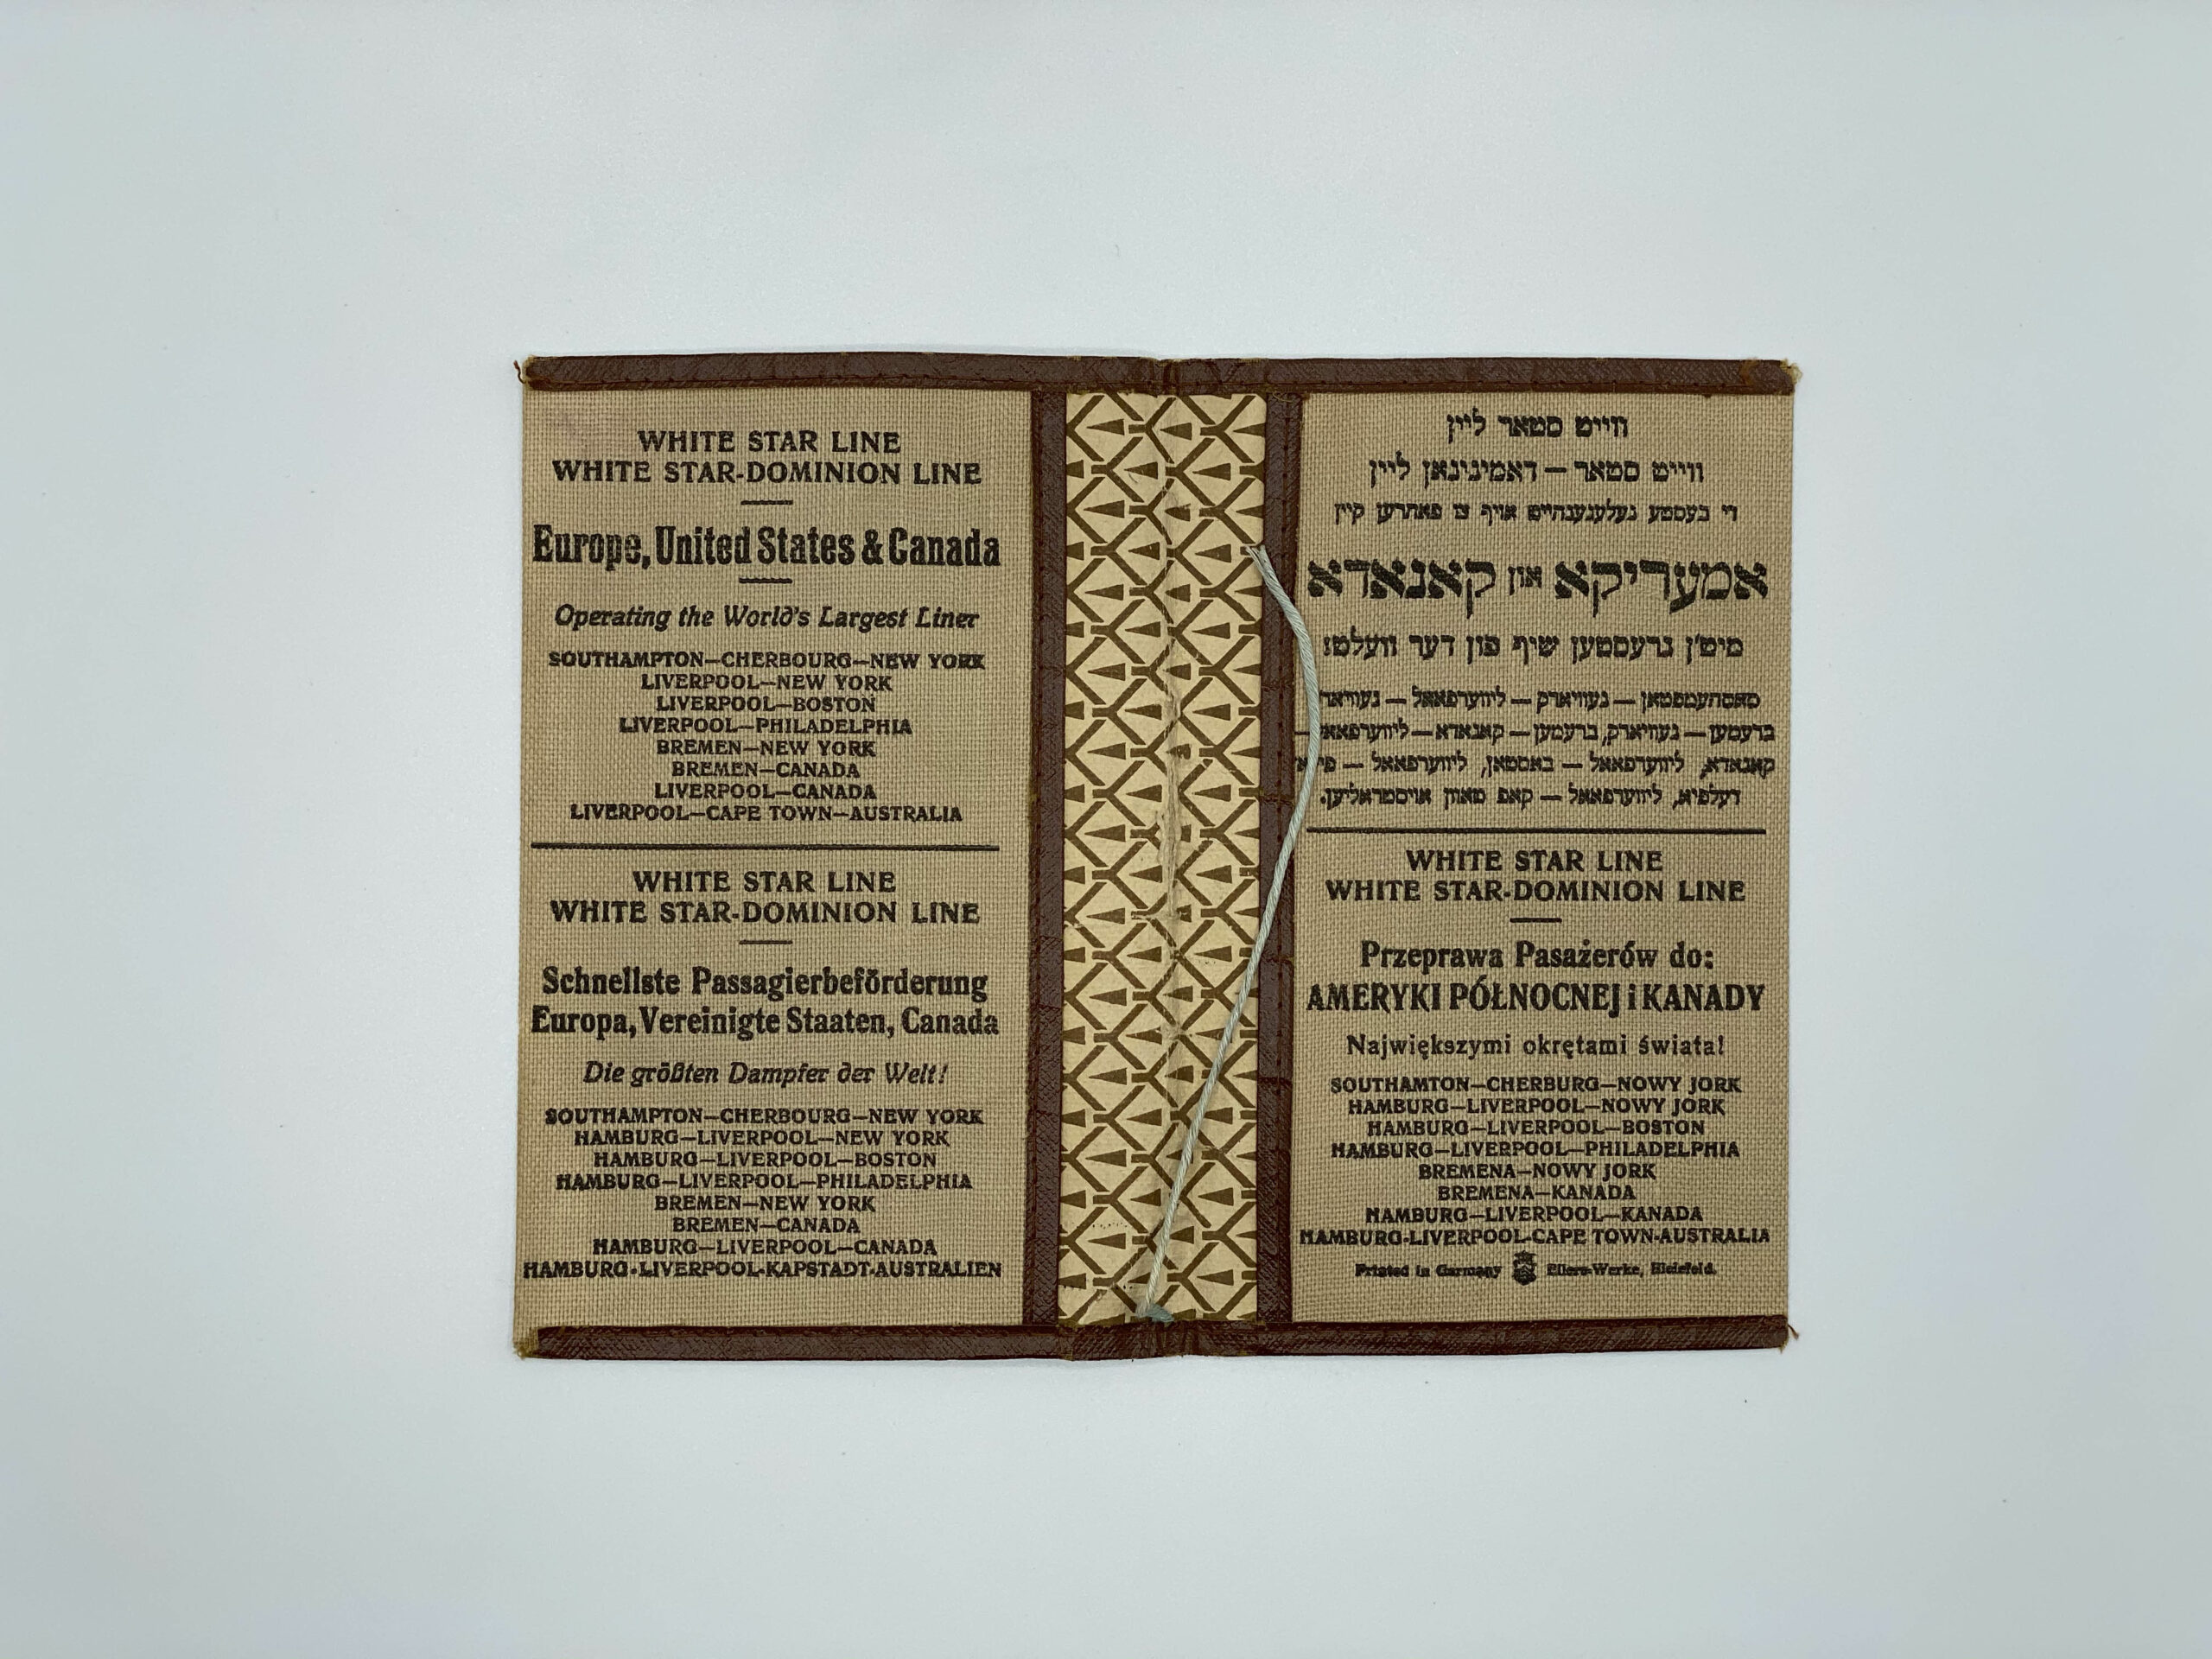 WHITE STAR LINE
WHITE STAR-DOMINION LINE
Europe, United States & Canada
Operating the World's Largest Liner
SOUTHAMPTON—CHERBOURG—NEW YORK
LIVERPOOL—NEW YORK
LIVERPOOL—BOSTON
LIVERPOOL—PHILADELPHIA
BREMEN—NEW YORK
BREMEN—CANADA
LIVERPOOL—CANADA
LIVERPOOL—CAPE TOWN—AUSTRALIA
WHITE STAR LINE
WHITE STAR-DOMINION LINE
Schnellste Passagierbeförderung
Europa, Vereinigte Staaten, Canada
Die größten Dampfer der Welt!
SOUTHAMPTON—CHERBOURG—NEW YORK
HAMBURG—LIVERPOOL—NEW YORK
HAMBURG—LIVERPOOL—BOSTON
HAMBURG—LIVERPOOL—PHILADELPHIA
BREMEN—NEW YORK
BREMEN—CANADA
HAMBURG—LIVERPOOL—CANADA
HAMBURG-LIVERPOOL-KAPSTADT-AUSTRALIEN
ווייט סטאר ליין
ווייט סטאר — דאמיניאן ליין
די בעסטע געלעגענהייט אויף צו פאהרען קיין
אמעריקא און קאנאדא
מיט'ן גרעסטען שיף פון דער וועלט!
סאוטהעמפטאן — נעוויארק — ליווערפאאל — נעוויארק
ברעמען — נעוויארק, ברעמען — קאנאדא — ליווערפאאל —
קאנאדא, ליווערפאאל — באסטאן, ליווערפאאל —
דעלפיא, ליווערפאאל — קאפ טאון אויסטראליען.
WHITE STAR LINE
WHITE STAR-DOMINION LINE
Przeprawa Pasażerów do:
AMERYKI PÓŁNOCNEJ i KANADY
Największymi okrętami świata!
SOUTHAMTON—CHERBURG—NOWY JORK
HAMBURG—LIVERPOOL—NOWY JORK
HAMBURG—LIVERPOOL—BOSTON
HAMBURG—LIVERPOOL—PHILADELPHIA
BREMENA—NOWY JORK
BREMENA—KANADA
HAMBURG—LIVERPOOL—KANADA
HAMBURG-LIVERPOOL-CAPE TOWN-AUSTRALIA
Printed in Germany Eilers-Werke, Bielefeld.